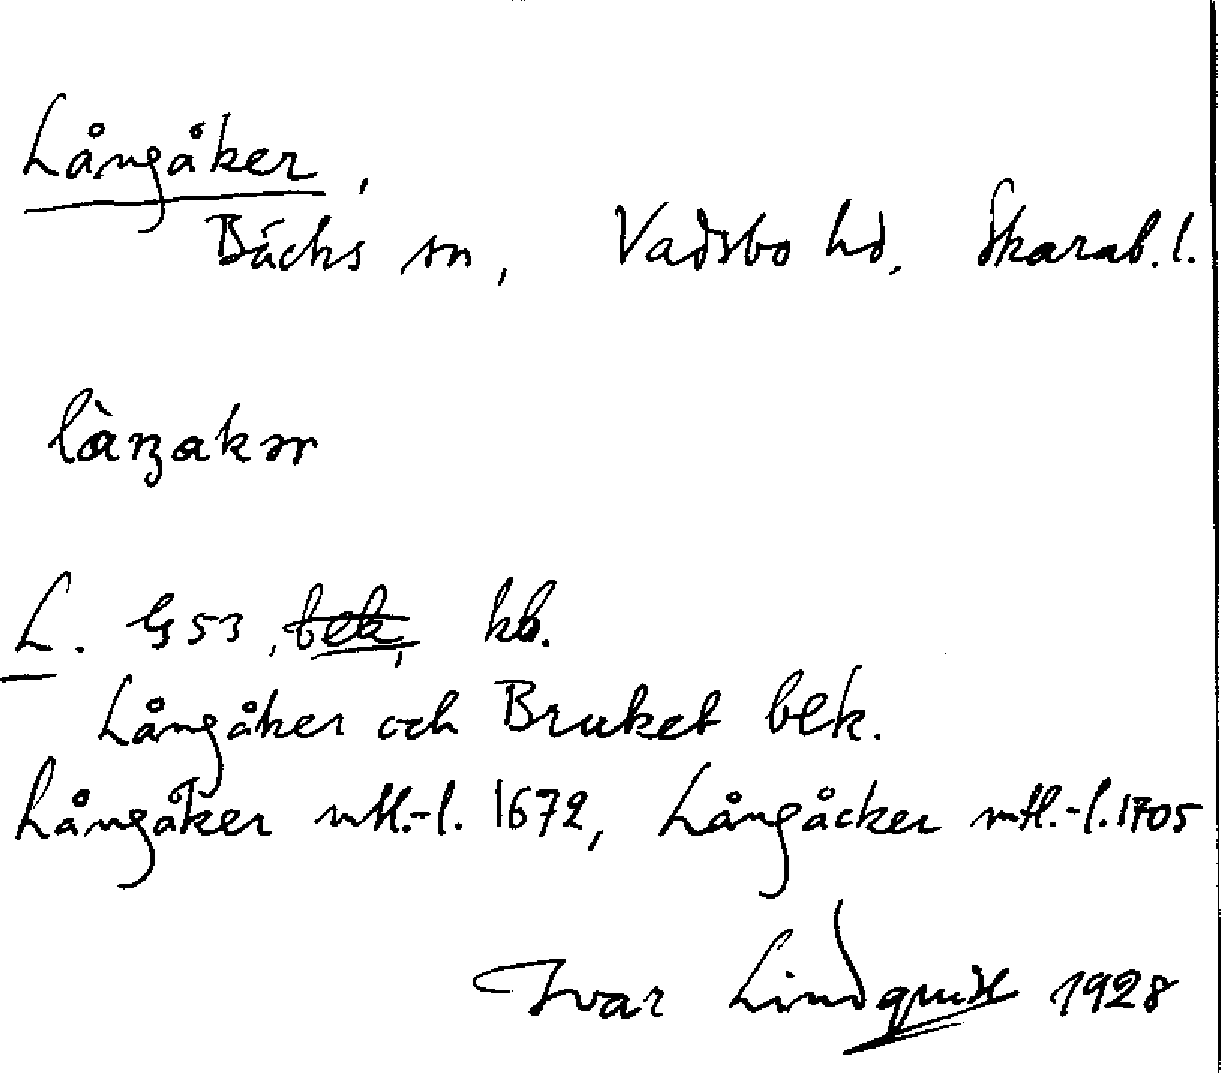 Långåker,
Bäcks sn, Vadsbo hd, Skarab. l.
L. G 53, bek, kb.
Långåker och Bruket bek.
Långåker mtl.-l. 1672, Långåcker mtl.-l. 1705
Ivar Lindquist 1928